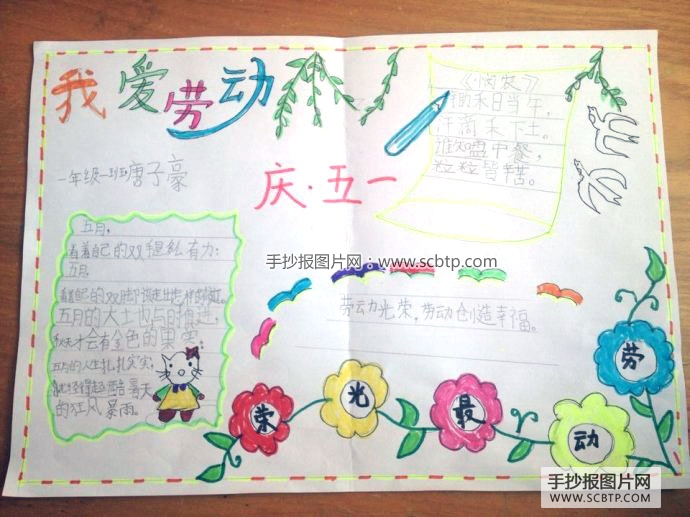 我爱劳动
一年级一班唐子豪
庆·五一
《悯农》
锄禾日当午,
汗滴禾下土。
谁知盘中餐,
粒粒皆辛苦。
手抄报图片网:www.scbtp.com
五月,
看着自己的双
有力;
五月
看着自己的双脚
五月的大土也与时推进,
秋天才会有金色的果实。
五月的人生扎扎实实,
就经得起酷暑天
的狂风暴雨。
劳动光荣,劳动创造幸福。
劳
动
最
光
荣
手抄报图片网
www.SCBTP.com